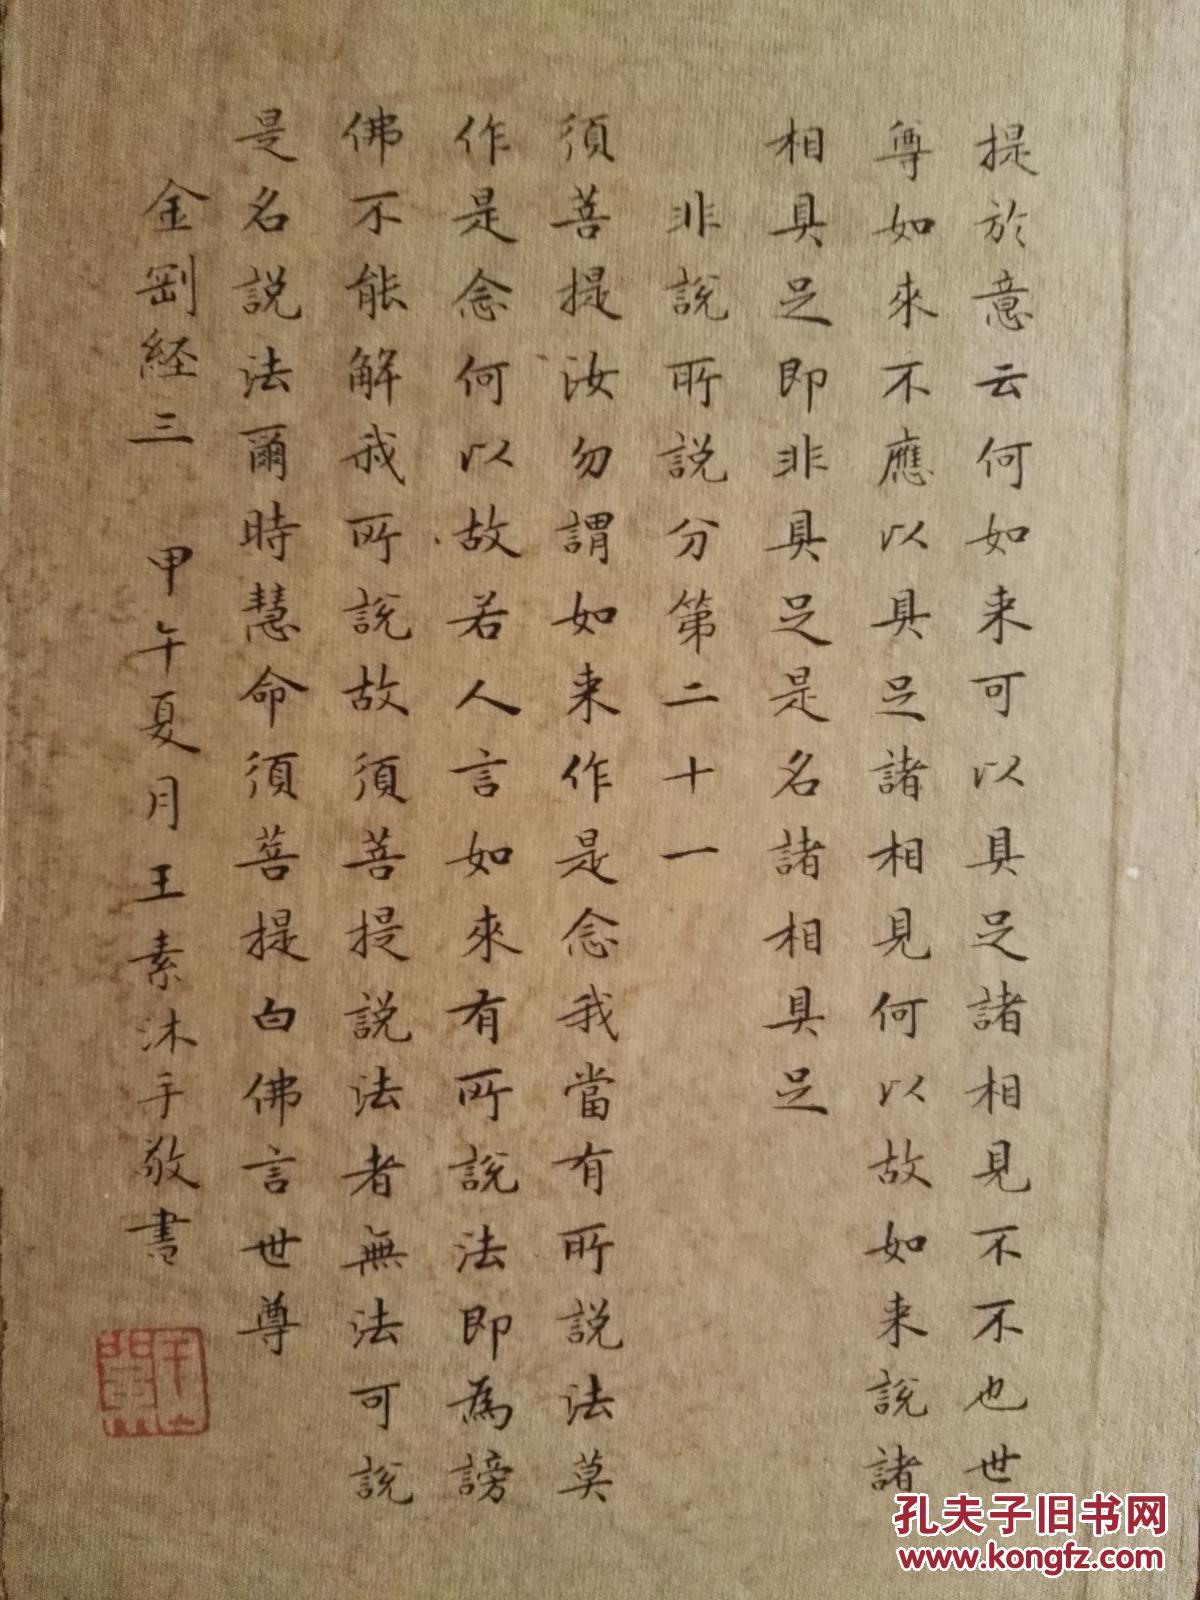 提於意云何如来可以具足諸相見不不也世
尊如來不應以具足諸相見何以故如来說諸
相具足即非具足是名諸相具足
非說所說分第二十一
須菩提汝勿謂如来作是念我當有所說法莫
作是念何以故若人言如來有所說法即為謗
佛不能解我所說故須菩提説法者無法可說
是名説法爾時慧命須菩提白佛言世尊
金剛経三 甲午夏月王素沐手敬書
孔夫子旧书网
www.kongfz.com